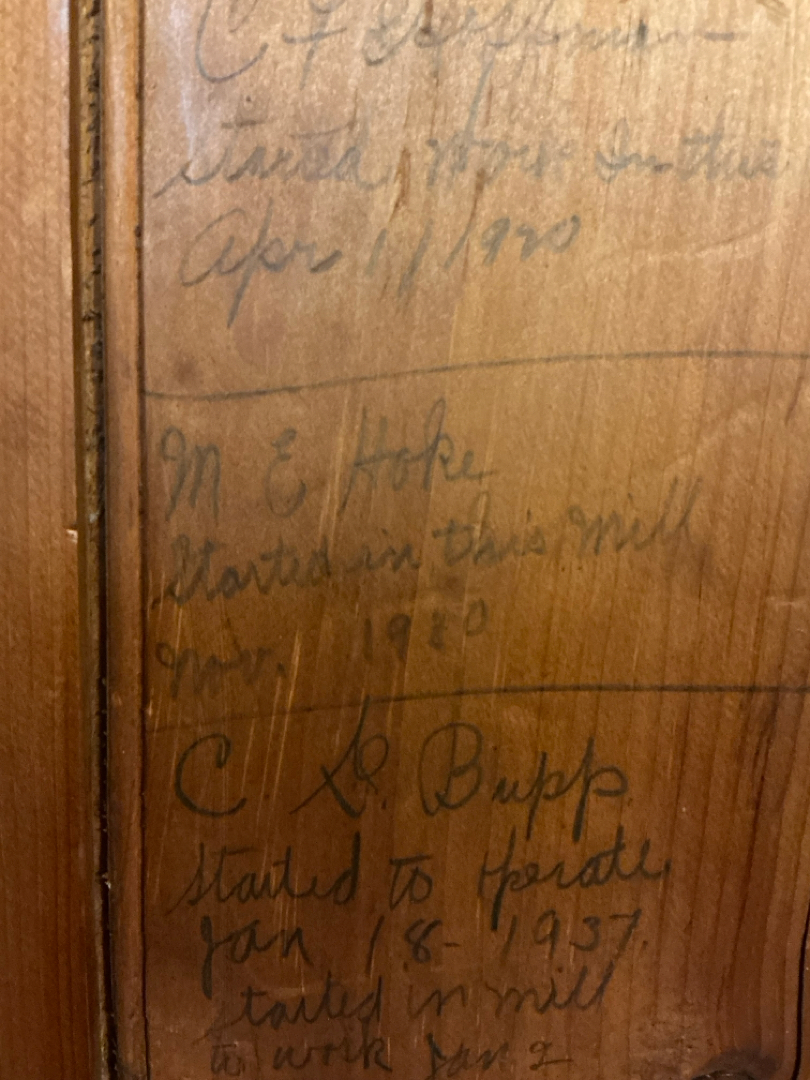 C F
started work In this
Apr 1 / 1920
M E Hoke
Started in this Mill
Nov. 1920
C D. Bupp
started to operate
Jan 18 - 1937
started in mill
to work Jan 2